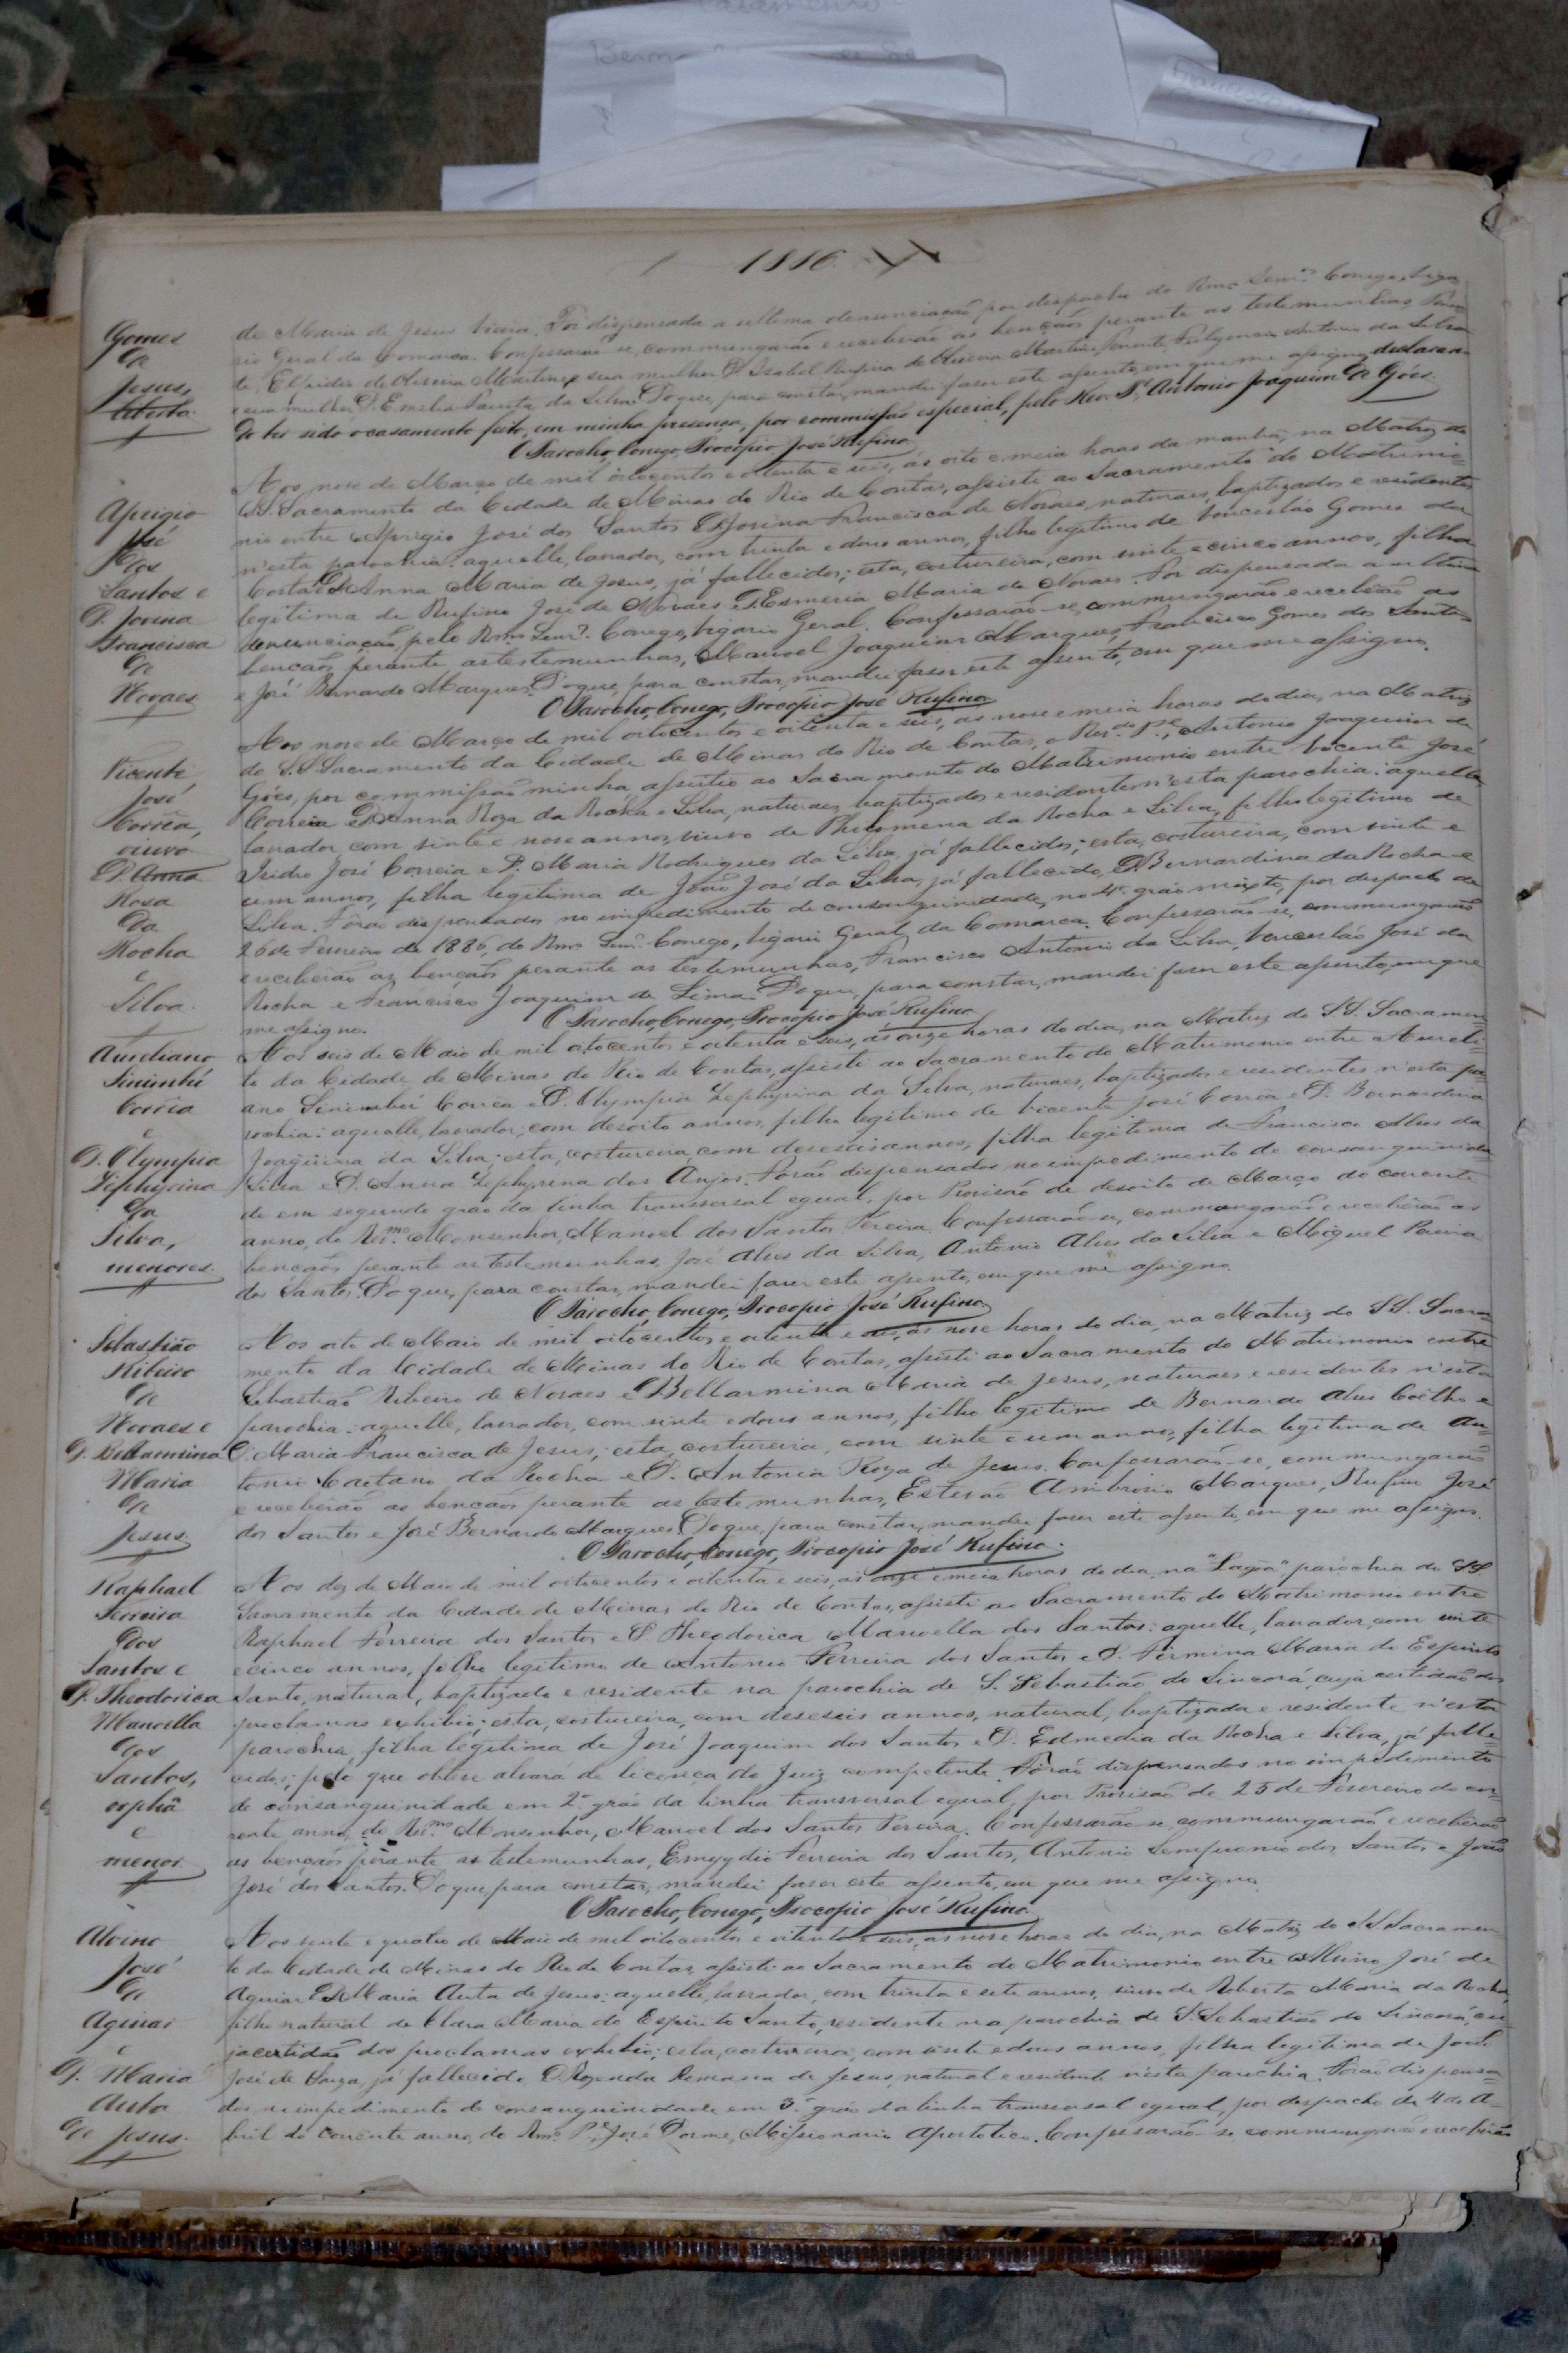 1886.
Gomes
de
Jesus,
liberto.
de Maria de Jesus Vieira. Foi dispensada a ultima denunciação por despacho do Rmo. Senr. Conego, Viga-
rio Geral da Comarca. Confessarão-se, commungarão e receberão as bençãos perante as testemunhas,
te, Elpidio de Oliveira Martins e sua mulher D. Isabel Rufina de Oliveira Martins, Tenente Fulgencio Antonio da Silva
e sua mulher D. Emilia da Silva. Do que, para constar, mandei faser este assento, em que me assigno, declaran-
do ter sido o casamento feito, em minha presença, por commissão especial, pelo Revo. Pe. Antonio Joaquim de Góes.
O Parocho, Conego, Procopio José Rufino
Aprigio
José
dos
Santos e
D. Jovina
Francisca
de
Novaes
Aos nove de Março de mil oitocentos e oitenta e seis, ás oito e meia horas da manhã, na Matriz do
SS. Sacramento da Cidade de Minas do Rio de Contas, assisti ao Sacramento do Matrimo-
nio entre Aprigio José dos Santos e D. Jovina Francisca de Novaes, naturaes, baptizados e residentes
n'esta parochia: aquelle, lavrador, com trinta e dous annos, filho legitimo de Venceslão Gomes da
Costa e D. Anna Maria de Jesus, já fallecidos; esta, costureira, com vinte e cinco annos, filha
legitima de Rufino José de Novaes e D. Esmeria Maria de Novaes. Foi dispensada a ultima
denunciação, pelo Rmo. Senr. Conego, Vigario Geral. Confessarão-se, commungarão e receberão as
bençãos, perante as testemunhas, Manoel Joaquim Marques, Francisco Gomes dos Santos
e José Bernardo Marques. Do que, para constar, mandei faser este assento, em que me assigno.
O Parocho, Conego, Procopio José Rufino
Vicente
José
Corrêa,
viuvo
D. Anna
Rosa
da
Rocha
e
Silva.
Aos nove de Março de mil oitocentos e oitenta e seis, as nove e meia horas do dia, na Matriz
do S.S. Sacramento da Cidade de Minas do Rio de Contas, o Revdo. Pe., Antonio Joaquim de
Góes, por commissão minha, assistio ao Sacramento do Matrimonio entre Vicente José
Correia e D. Anna Roza da Rocha e Silva, naturaes, baptizados e residentes n'esta parochia: aquelle,
lavrador, com vinte e nove annos, viuvo de Philomena da Rocha e Silva, filho legitimo de
Isidro José Correia e D. Maria Rodrigues da Silva, já fallecidos; esta, costureira, com vinte e
um annos, filha legitima de João José da Silva, já fallecido, e D. Bernardina da Rocha e
Silva. Forão dispensados no impedimento de consanguinidade, no 4º. gráo mixto, por despacho de
26 de Fevereiro de 1886, do Rmo. Senr. Conego, Vigario Geral da Comarca. Confessarão-se, commungarão
e receberão as bençãos perante as testemunhas, Francisco Antonio da Silva, Venceslão José da
Rocha e Francisco Joaquim de Lima. Do que, para constar, mandei faser este assento, em que
me assigno. O Parocho, Conego, Procopio José Rufino
Aureliano
Sinimbú
Corrêa
e
D. Olympia
Zephyrina
da
Silva,
menores.
Aos seis de Maio de mil oitocentos e oitenta e seis, ás onze horas do dia, na Matriz do SS. Sacramen-
to da Cidade de Minas do Rio de Contas, assisti ao Sacramento do Matrimonio entre Aureli-
ano Sinimbú Corrêa e D. Olympia Zephyrina da Silva, naturaes, baptizados e residentes n'esta pa-
rochia: aquelle, lavrador, com desoito annos, filho legitimo de Vicente José Corrêa e D. Bernardina
Joaquina da Silva; esta, costureira, com deseseis annos, filha legitima de Francisco Alves da
Silva e D. Anna Zephyrina dos Anjos. Forão dispensados no impedimento de consanguinida-
de em segundo gráo da linha transversal egual, por Provisão de desoito de Março do corrente
anno, do Revmo. Monsenhor, Manoel dos Santos Pereira. Confessarão-se, commungarão e receberão as
bençãos perante as testemunhas, José Alves da Silva, Antonio Alves da Silva e Miguel Pereira
dos Santos. Do que, para constar, mandei faser este assento, em que me assigno.
O Parocho, Conego, Procopio José Rufino
Sebastião
Ribeiro
de
Novaes e
D. Bellarmina
Maria
de
Jesus.
Aos oito de Maio de mil oitocentos e oitenta e seis, ás nove horas do dia, na Matriz do SS. Sacra-
mento da Cidade de Minas do Rio de Contas, assisti ao Sacramento do Matrimonio entre
Sebastião Ribeiro de Novaes e D. Bellarmina Maria de Jesus, naturaes e residentes n'esta
parochia: aquelle, lavrador, com vinte e dous annos, filho legitimo de Bernardo Alves Coêlho e
D. Maria Francisca de Jesus; esta, costureira, com vinte e um annos, filha legitima de An-
tonio Caetano da Rocha e D. Antonia Roza de Jesus. Confessarão-se, commungarão
e receberão as bençãos perante as testemunhas, Estevão Ambrosio Marques, Rufino José
dos Santos e José Bernardo Marques. Do que, para constar, mandei faser este assento, em que me assigno.
O Parocho, Conego, Procopio José Rufino.
Raphael
Ferreira
dos
Santos e
D. Theodorica
Manoella
dos
Santos,
orphã
e
menor.
Aos dez de Maio de mil oitocentos e oitenta e seis, ás onze e meia horas do dia, na "Lagôa", parochia do SS
Sacramento da Cidade de Minas do Rio de Contas, assisti ao Sacramento do Matrimonio entre
Raphael Ferreira dos Santos e D. Theodorica Manoella dos Santos: aquelle, lavrador, com vinte
e cinco annos, filho legitimo de Antonio Ferreira dos Santos e D. Firmina Maria do Espirito
Santo, natural, baptizado e residente na parochia de S. Sebastião do Sincorá, cuja certidão dos
proclamas exhibio; esta, costureira, com deseseis annos, natural, baptizada e residente n'esta
parochia, filha legitima de José Joaquim dos Santos e D. Edmedia da Rocha e Silva, já falle-
cidos; pelo que obteve alvará de licença do Juiz competente. Forão dispensados no impedimento
de consanguinidade em 2º gráo da linha transversal egual, por Provisão de 25 de Fevereiro do cor-
rente anno, do Revmo. Monsenhor, Manoel dos Santos Pereira. Confessarão-se, commungarão e receberão
as bençãos perante as testemunhas, Emygdio Ferreira dos Santos, Antonio Sempronio dos Santos e João
José dos Santos. Do que, para constar, mandei faser este assento, em que me assigno.
O Parocho, Conego, Procopio José Rufino
Alvino
José
de
Aguiar
e
D. Maria
Auta
de Jesus.
Aos vinte e quatro de Maio de mil oitocentos e oitenta e seis, as nove horas do dia, na Matriz do SS Sacramen-
to da Cidade de Minas do Rio de Contas, assisti ao Sacramento do Matrimonio entre Alvino José de
Aguiar e D. Maria Auta de Jesus: aquelle, lavrador, com trinta e sete annos, viuvo de Roberta Maria da Rocha,
filho natural de Clara Maria do Espirito Santo, residente na parochia de S. Sebastião do Sincorá, cu-
ja certidão dos proclamas exhibio; esta, costureira, com vinte e dous annos, filha legitima de
José de Souza, já fallecido, e D. Romana de Jesus, natural e residente n'esta parochia. Forão dispensa-
dos no impedimento de consanguinidade em 3º. gráo da linha transversal egual, por despacho de 4 de A-
bril do corrente anno, do Rmo. Pe. José Dorme, Missionario Apostolico. Confessarão-se, commungarão e receberão